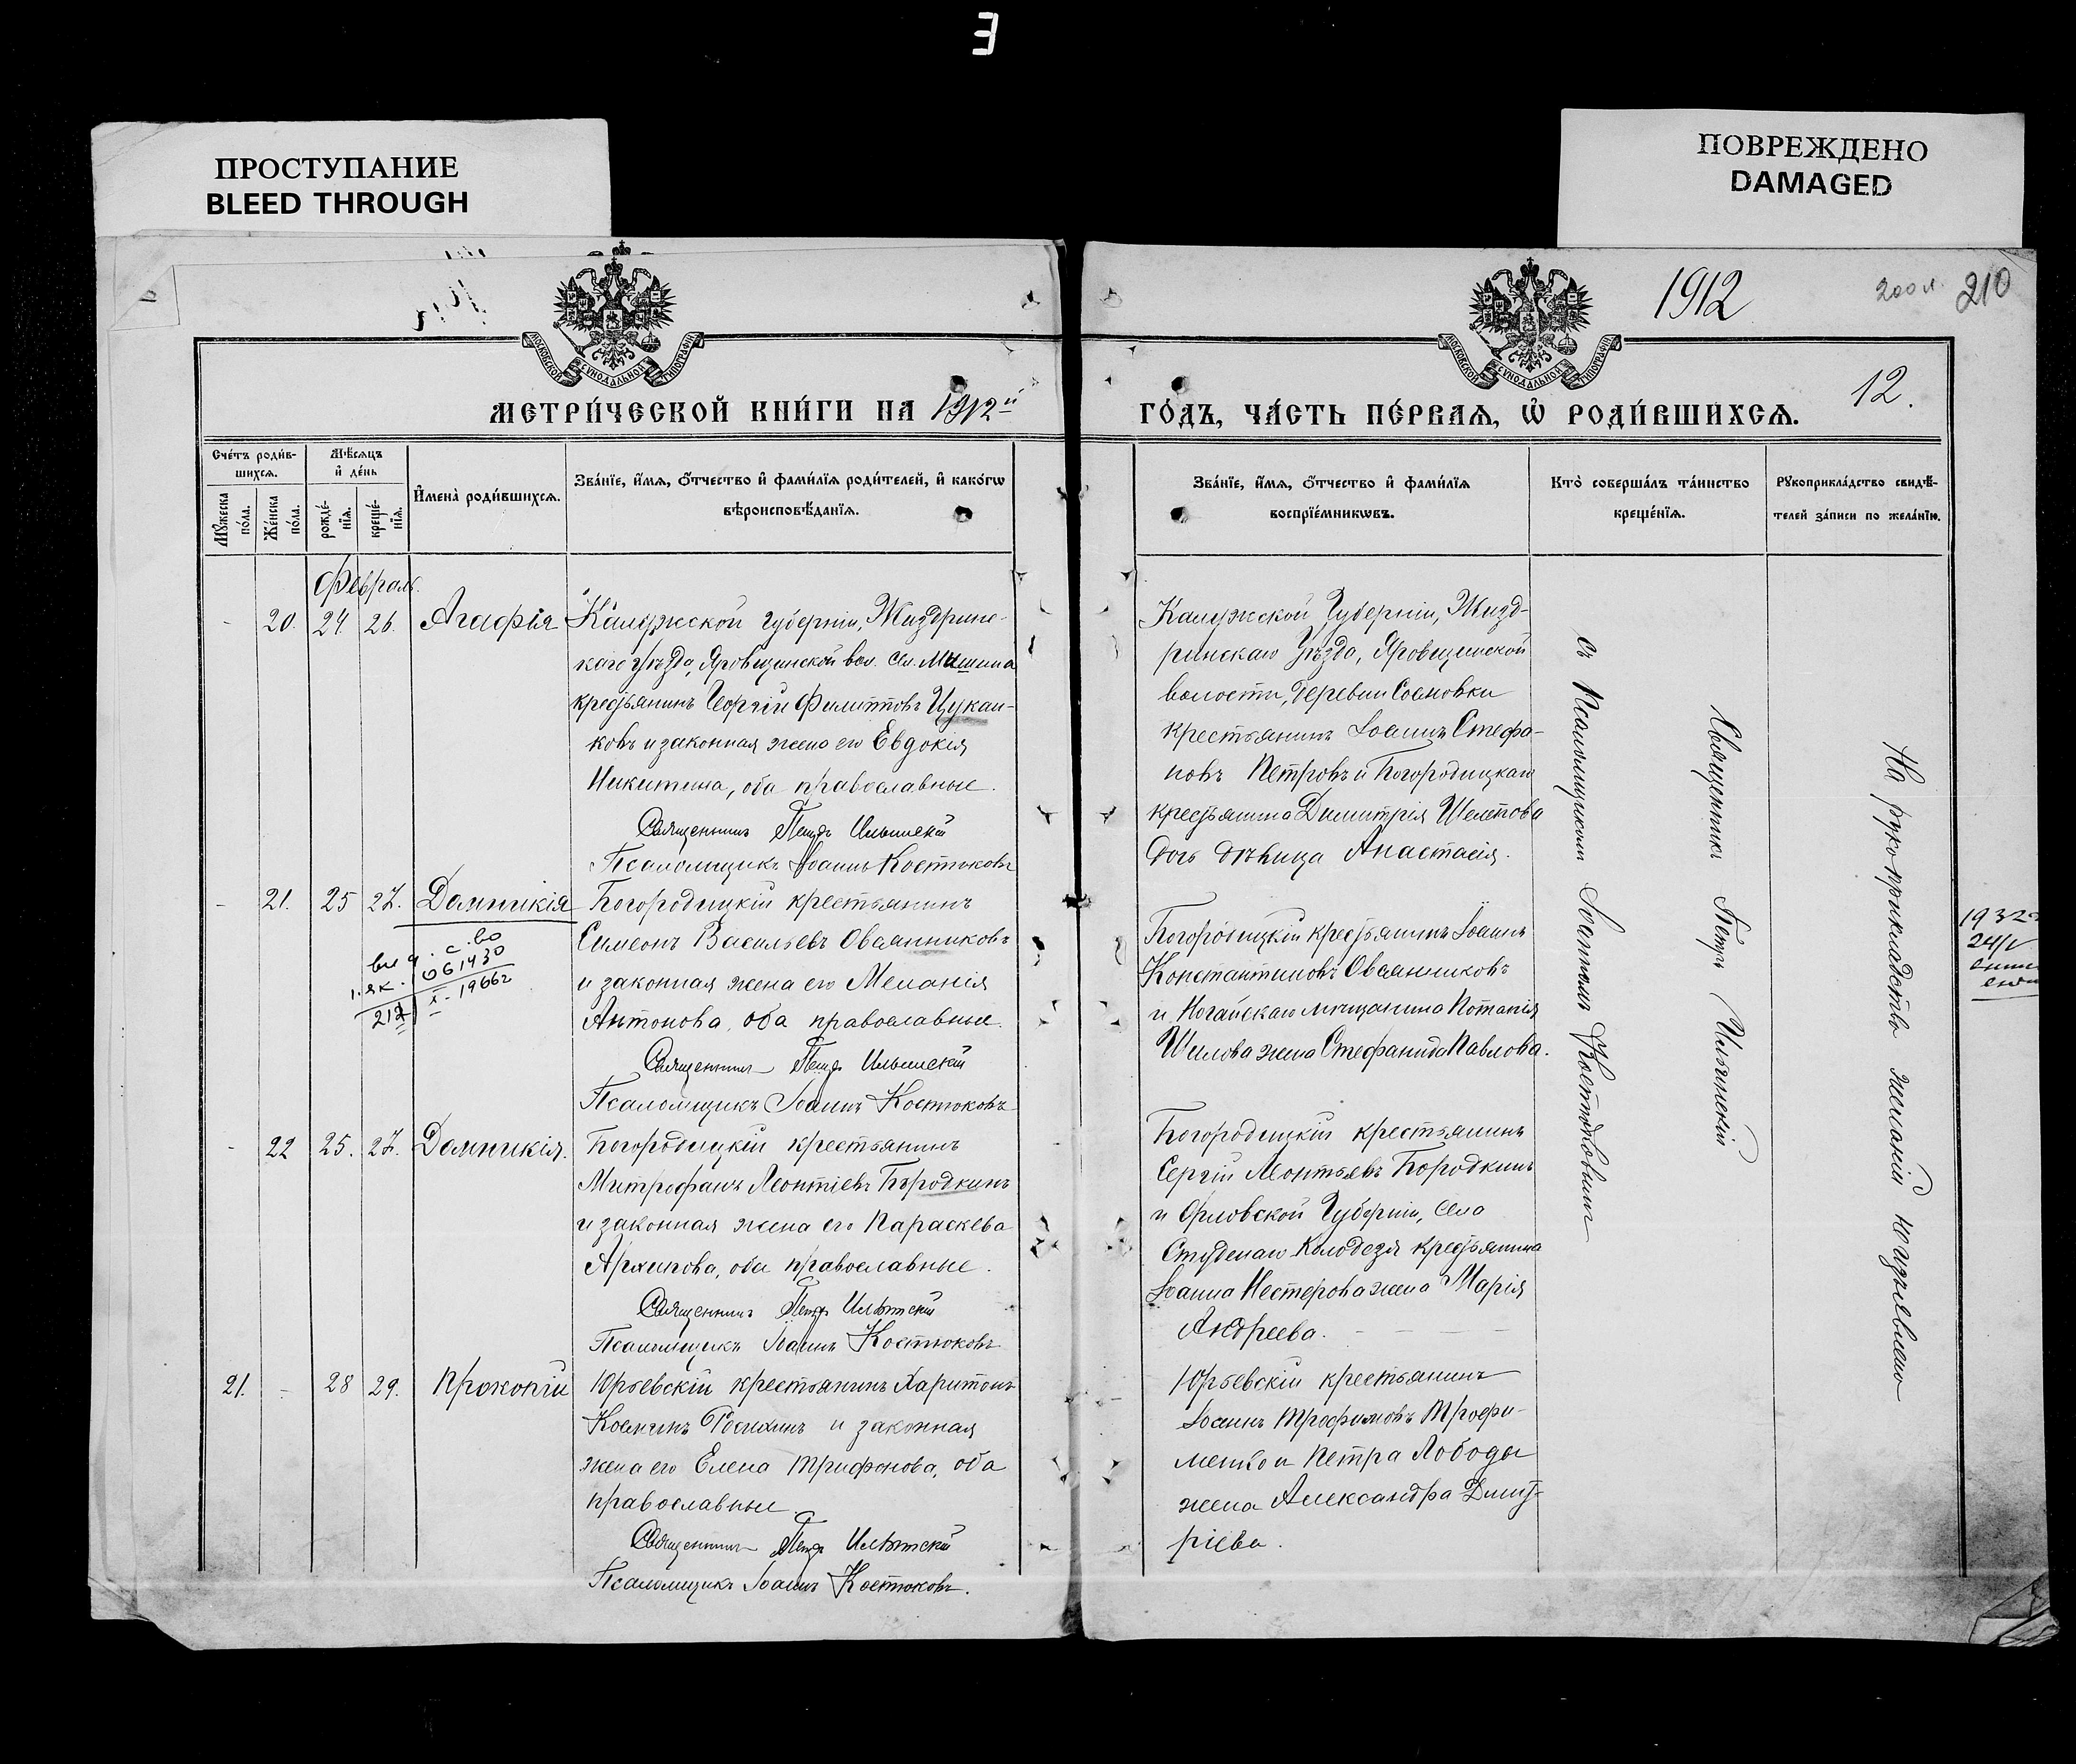 E
ПРОСТУПАНИЕ
BLEED THROUGH
ПОВРЕЖДЕНО
DAMAGED
1912
200 л.
210
МОСКОВСКОЙ СѴНОДАЛЬНОЙ ТИПОГРАФІИ
МОСКОВСКОЙ СѴНОДАЛЬНОЙ ТИПОГРАФІИ
МЕТРИ́ЧЕСКОЙ КНИ́ГИ НА 1912й
ГО́ДЪ, ЧА́СТЬ ПЕ́РВАЯ, Ѡ҆ РОДИ́ВШИХСЯ.
12.
Сче́тъ роди́в-
шихся.
Мꙋ́жеска
по́ла.
Же́нска
по́ла.
Мѣ́сяцъ
и҆ де́нь
рожде́-
нїя.
креще́-
нїя.
И҆мена̀ роди́вшихся.
Зва́нїе, и҆́мя, ѻ҆́тчество и҆ фами́лїя роди́телей, и҆ како́гѡ
вѣроисповѣ́данїя.
Зва́нїе, и҆́мя, ѻ҆́тчество и҆ фами́лїя
воспрїе́мникѡвъ.
Кто̀ соверша́лъ та́инство
креще́нїя.
Рꙋкоприкла́дство свидѣ́-
телей за́писи по жела́нїю.
Февраль.
- 20. 24 26. Агафія
Калужской губерніи, Жиздринс-
каго уѣзда, Яровщинской вол. сел. Мишина
крестьянинъ Георгій Филипповъ Цукан-
ковъ и законная жена его Евдокія
Никитина, оба православные.
Священникъ Петръ Ильинскій
Псаломщикъ Іоаннъ Костюковъ
Калужской Губерніи, Жизд-
ринскаго Уѣзда, Яровщинской
волости, деревни Сосновки
крестьянинъ Іоаннъ Стефа-
новъ Петровъ и Богородицкаго
крестьянина Димитрія Шелепова
дочь дѣвица Анастасія.
- 21. 25 27. Домникія
061430
1-19662
Богородицкій крестьянинъ
Симеонъ Васильевъ Овсянниковъ
и законная жена его Меланія
Антонова, оба православные.
Священникъ Петръ Ильинскій
Псаломщикъ Іоаннъ Костюковъ
Богородицкій крестьянинъ Іоаннъ
Константиновъ Овсянниковъ
и Ногайскаго мѣщанина Потапія
Шилова жена Стефанида Павлова.
1932
24/V
- 22 25. 27. Домникія.
Богородицкій крестьянинъ
Митрофанъ Леонтіевъ Бородкинъ
и законная жена его Параскева
Архипова, оба православные.
Священникъ Петръ Ильинскій
Псаломщикъ Іоаннъ Костюковъ
Богородицкій крестьянинъ
Сергій Леонтьевъ Бородкинъ
и Орловской Губерніи, села
Студенаго Колодезя крестьянина
Іоанна Нестерова жена Марія
Андреева.
21. - 28 29. Прокопій
Юрьевскій крестьянинъ Харитонъ
Косминъ и законная
жена его Елена Трифонова, оба
православные
Священникъ Петръ Ильинскій
Псаломщикъ Іоаннъ Костюковъ.
Юрьевскій крестьянинъ
Іоаннъ Трофимовъ Трофи-
менко и Петра Лободы
жена Александра Дмит-
ріева.
Священникъ Петръ Ильинскій
съ Псаломщикомъ Іоанномъ Костюковымъ
На рукоприкладство желанія не изъявлено